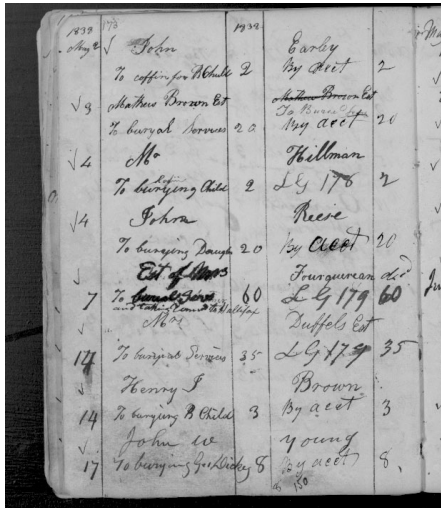 1838 173 1838
May 2 John Earley
To coffin for B Child 2 By acct 2
3 Mathew Brown Est Mathew Brown Est
To buryal Services 20 By acct 20
4 Mr Hillman
To burying Child 2 LG 178 2
4 John Reese
To burying Daughter 20 By acct 20
Est of Mrs Fourqurean
7 To burial Serv 60 LG 179 60
and taking to Halifax
Mrs Duffels Est
14 To buryal Services 35 LG 179 35
Henry J Brown
14 To burying B Child 3 By acct 3
John W Young
17 To burying Dickey 8 By acct 8
150